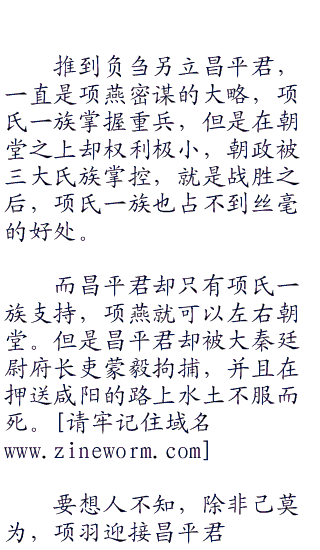 推到负刍另立昌平君，
一直是项燕密谋的大略，项
氏一族掌握重兵，但是在朝
堂之上却权利极小，朝政被
三大氏族掌控，就是战胜之
后，项氏一族也占不到丝毫
的好处。
而昌平君却只有项氏一
族支持，项燕就可以左右朝
堂。但是昌平君却被大秦廷
尉府长吏蒙毅拘捕，并且在
押送咸阳的路上水土不服而
死。[请牢记住域名
www.zineworm.com]
要想人不知，除非己莫
为，项羽迎接昌平君